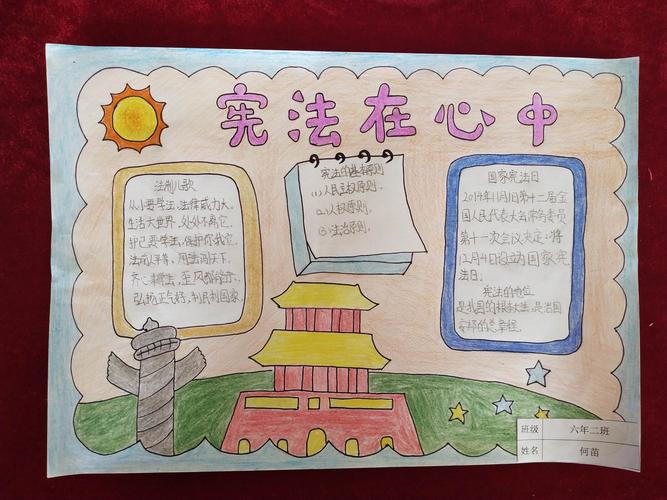 宪法在心中
法制儿歌
从小要学法,法律威力大。
生活大世界,处处不离它。
护己要学法,保护你我它。
法前人平等,用法闯天下。
齐心来学法,
弘扬正气好,利民利国家。
宪法的基本原则
(1)人民主权原则,
(2)人权原则,
(3)法治原则,
国家宪法日
2014年11月1日第十二届全
国人民代表大会常务委员
第十一次会议决定:将
12月4日设立为国家宪
法日。
宪法的地位
是我国的根本大法,是治国
安邦的总章程
班级 六年二班
姓名 何苗